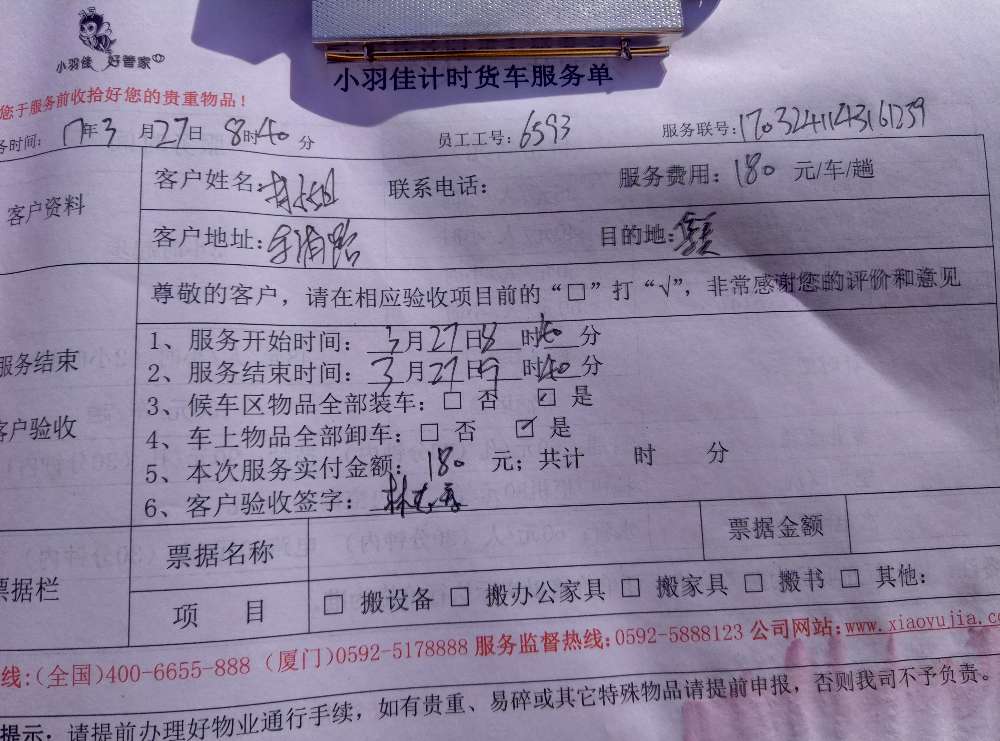 小羽佳 好管家
小羽佳计时货车服务单
您于服务前收拾好您的贵重物品！
务时间：17年3月27日8时40分 员工工号：6593 服务联号：1703241143161239
客户资料
客户姓名： 联系电话： 服务费用：180元/车/趟
客户地址： 目的地：
尊敬的客户，请在相应验收项目前的“□”打“√”，非常感谢您的评价和意见
服务结束
客户验收
1、服务开始时间：3月27日8时40分
2、服务结束时间：3月27日9时40分
3、候车区物品全部装车：□ 否 ☑ 是
4、车上物品全部卸车：□ 否 ☑ 是
5、本次服务实付金额：180元；共计 时 分
6、客户验收签字：
票据栏
票据名称 票据金额
项 目 □ 搬设备 □ 搬办公家具 □ 搬家具 □ 搬书 □ 其他：
线：(全国)400-6655-888 (厦门)0592-5178888 服务监督热线：0592-5888123 公司网站：www.xiaoyujia.co
提示：请提前办理好物业通行手续，如有贵重、易碎或其它特殊物品请提前申报，否则我司不予负责。